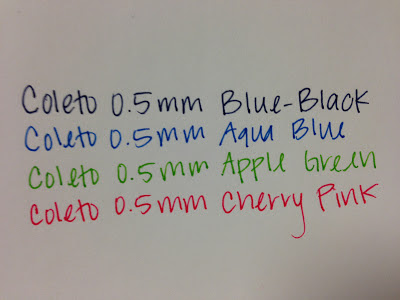 Coleto 0.5mm Blue-Black
Coleto 0.5mm Aqua Blue
Coleto 0.5mm Apple Green
Coleto 0.5mm Cherry Pink